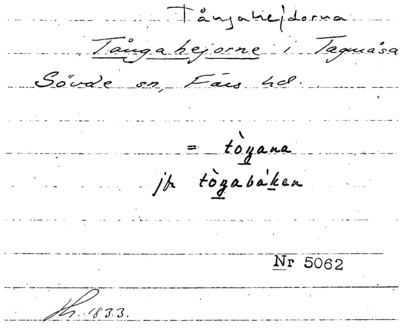 Tångahejdorna
Tångahejorne i Tagmåsa
Sövde sn, Färs hd.
= tògana
jfr tògabáken
Nr 5062
1833.